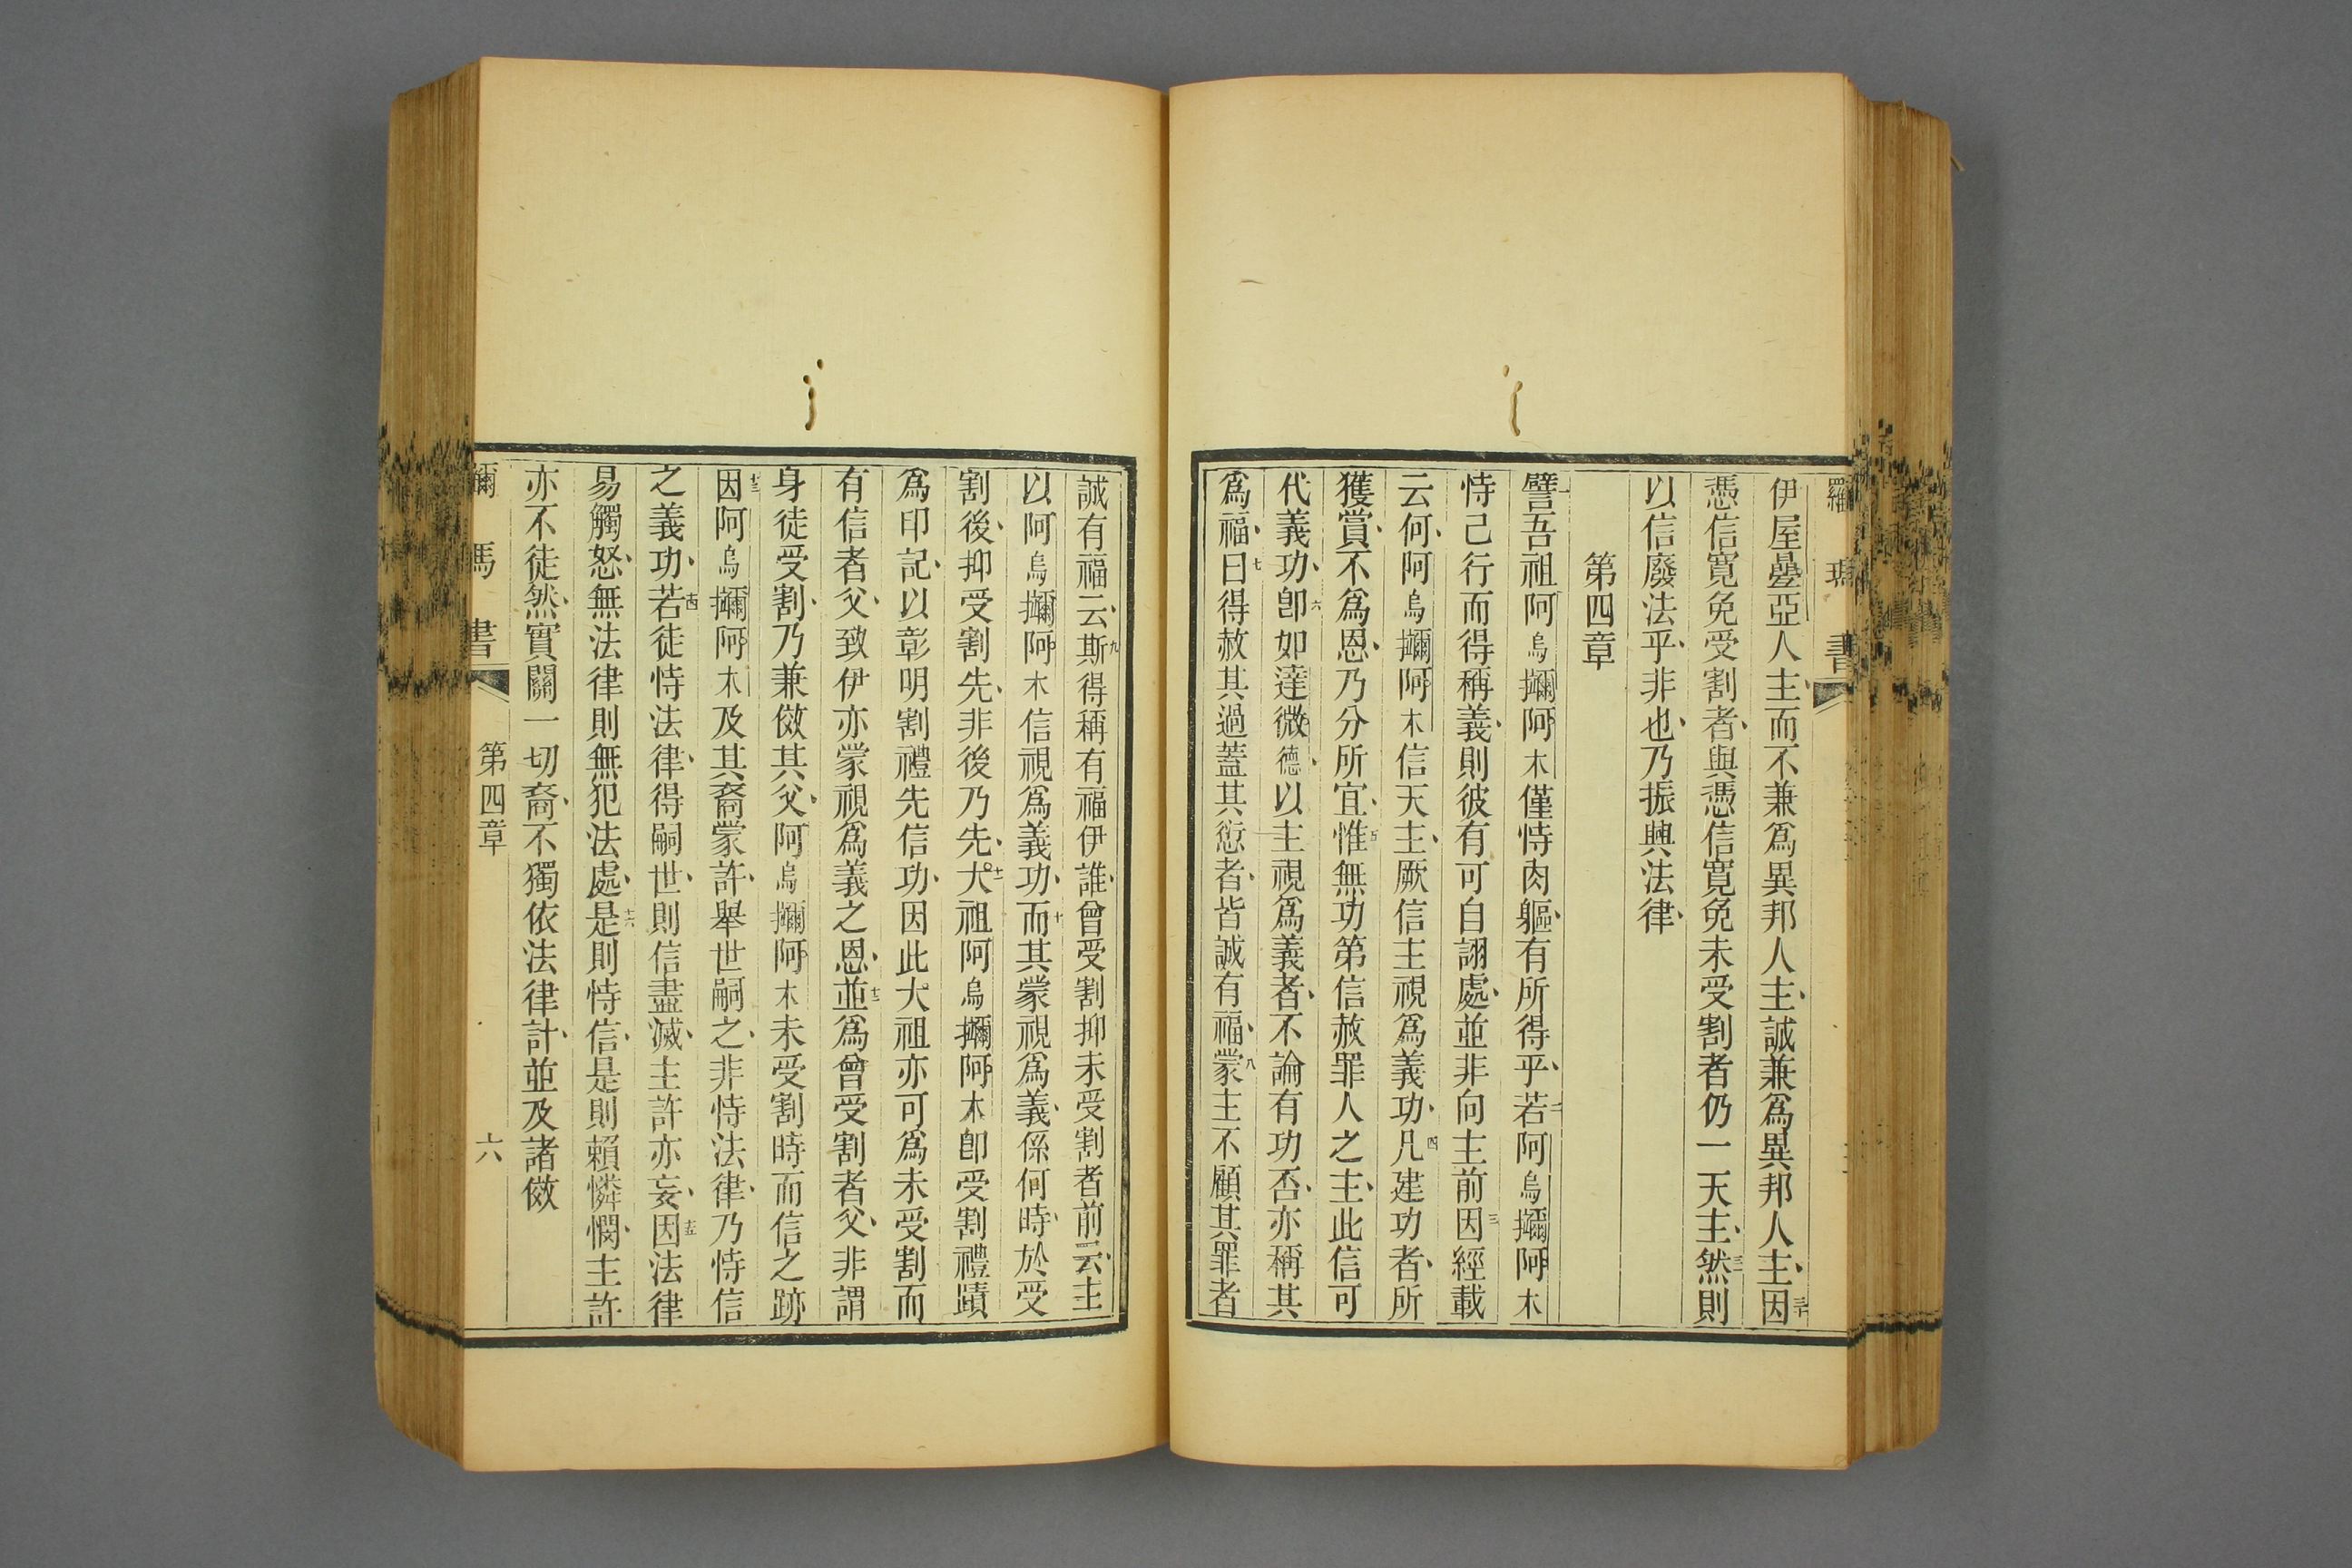 羅瑪書
伊屋曡亞人主而不兼爲異邦人主誠兼爲異邦人主因
憑信寛免受割者與憑信寛免未受割者仍一天主三然則
以信廢法乎非也乃振興法律
第四章
一譬吾祖阿烏攔阿木僅恃肉軀有所得乎二若阿烏攔阿木
恃己行而得稱義則彼有可自詡處並非向主前三因經載
云何阿烏攔阿木信天主厥信主視爲義功四凡建功者所
獲賞不爲恩乃分所宜五惟無功第信赦罪人之主此信可
代義功六卽如達微德以主視爲義者不論有功否亦稱其
爲福七曰得赦其過蓋其愆者皆誠有福八蒙主不顧其罪者
誠有福云九斯得稱有福伊誰曾受割抑未受割者前云主
以阿烏攔阿木信視爲義功十而其蒙視爲義係何時於受
割後抑受割先非後乃先十一大祖阿烏攔阿木卽受割禮蹟
爲印記以彰明割禮先信功因此大祖亦可爲未受割而
有信者父致伊亦蒙視爲義之恩十二並爲曾受割者父非謂
身徒受割乃兼傚其父阿烏攔阿木未受割時而信之跡
十三因阿烏攔阿木及其裔蒙許舉世嗣之非恃法律乃恃信
之義功十四若徒恃法律得嗣世則信盡滅主許亦妄十五因法律
易觸怒無法律則無犯法處十六是則恃信是則賴憐憫主許
亦不徒然實關一切裔不獨依法律計並及諸傚
馬書
第四章
六